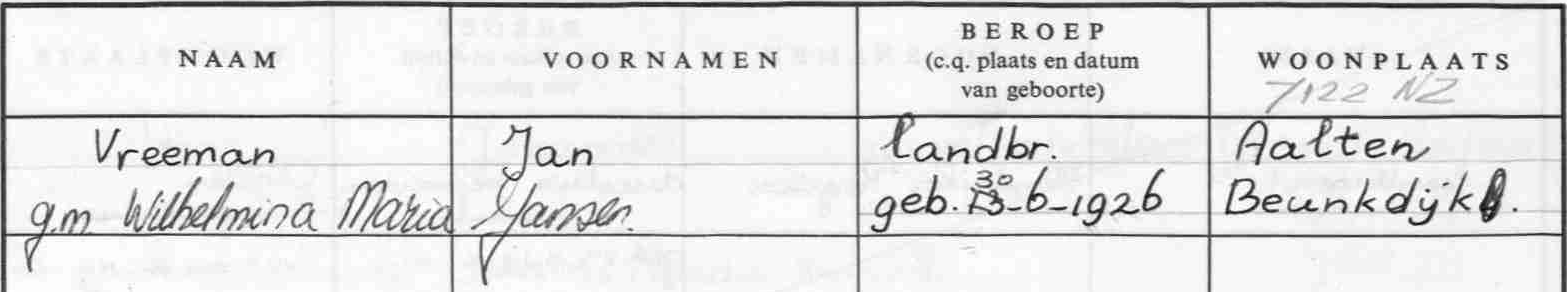 NAAM VOORNAMEN BEROEP (c.q. plaats en datum van geboorte) WOONPLAATS
7122 NZ
Vreeman Jan landbr. Aalten
g.m Wilhelmina Maria Jansen. geb. 30-6-1926 Beunkdijk